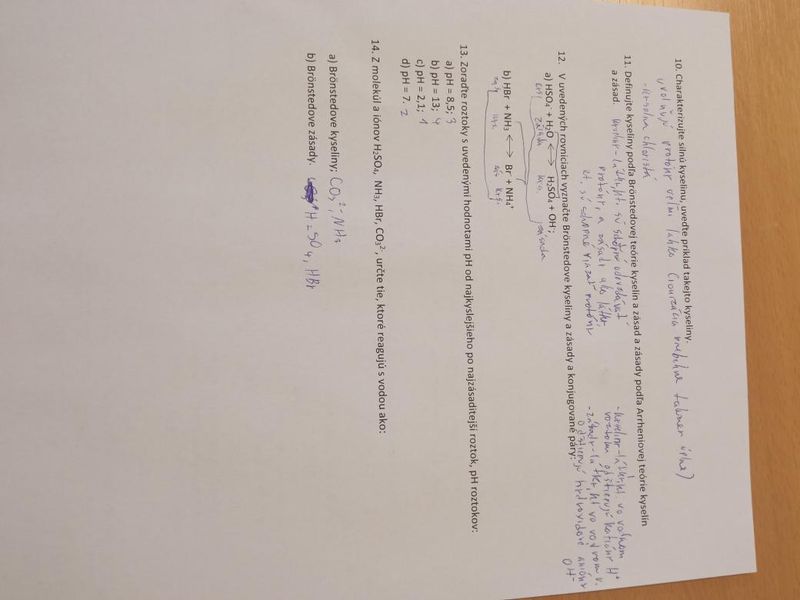 10. Charakterizujte silnú kyselinu, uveďte príklad takejto kyseliny.
uvoľňujú protóny veľmi ľahko (ionizácia prebieha takmer úplne)
- kyselina chloristá
11. Definujte kyseliny podľa Brönstedovej teórie kyselín a zásad a zásady podľa Arrheniovej teórie kyselín
a zásad.
sú schopné odovzdávať
protóny, a zásady ako látky
kt. sú schopné viazať protóny
- kyseliny - látky, kt. vo vodnom
roztoku odštiepujú katióny H⁺
- zásady - látky, kt. vo vodnom r.
odštiepujú hydroxidové anióny
OH⁻
12. V uvedených rovniciach vyznačte Brönstedove kyseliny a zásady a konjugované páry:
a) HSO₄⁻ + H₂O ⟷ H₂SO₄ + OH⁻;
zásada kys. zásada
b) HBr + NH₃ ⟷ Br⁻ + NH₄⁺
kys.
13. Zoraďte roztoky s uvedenými hodnotami pH od najkyslejšieho po najzásaditejší roztok, pH roztokov:
a) pH = 8,5; 3
b) pH = 13; 4
c) pH = 2,1; 1
d) pH = 7. 2
14. Z molekúl a iónov H₂SO₄, NH₃, HBr, CO₃²⁻, určte tie, ktoré reagujú s vodou ako:
a) Brönstedove kyseliny; CO₃²⁻, NH₃
b) Brönstedove zásady. H₂SO₄, HBr